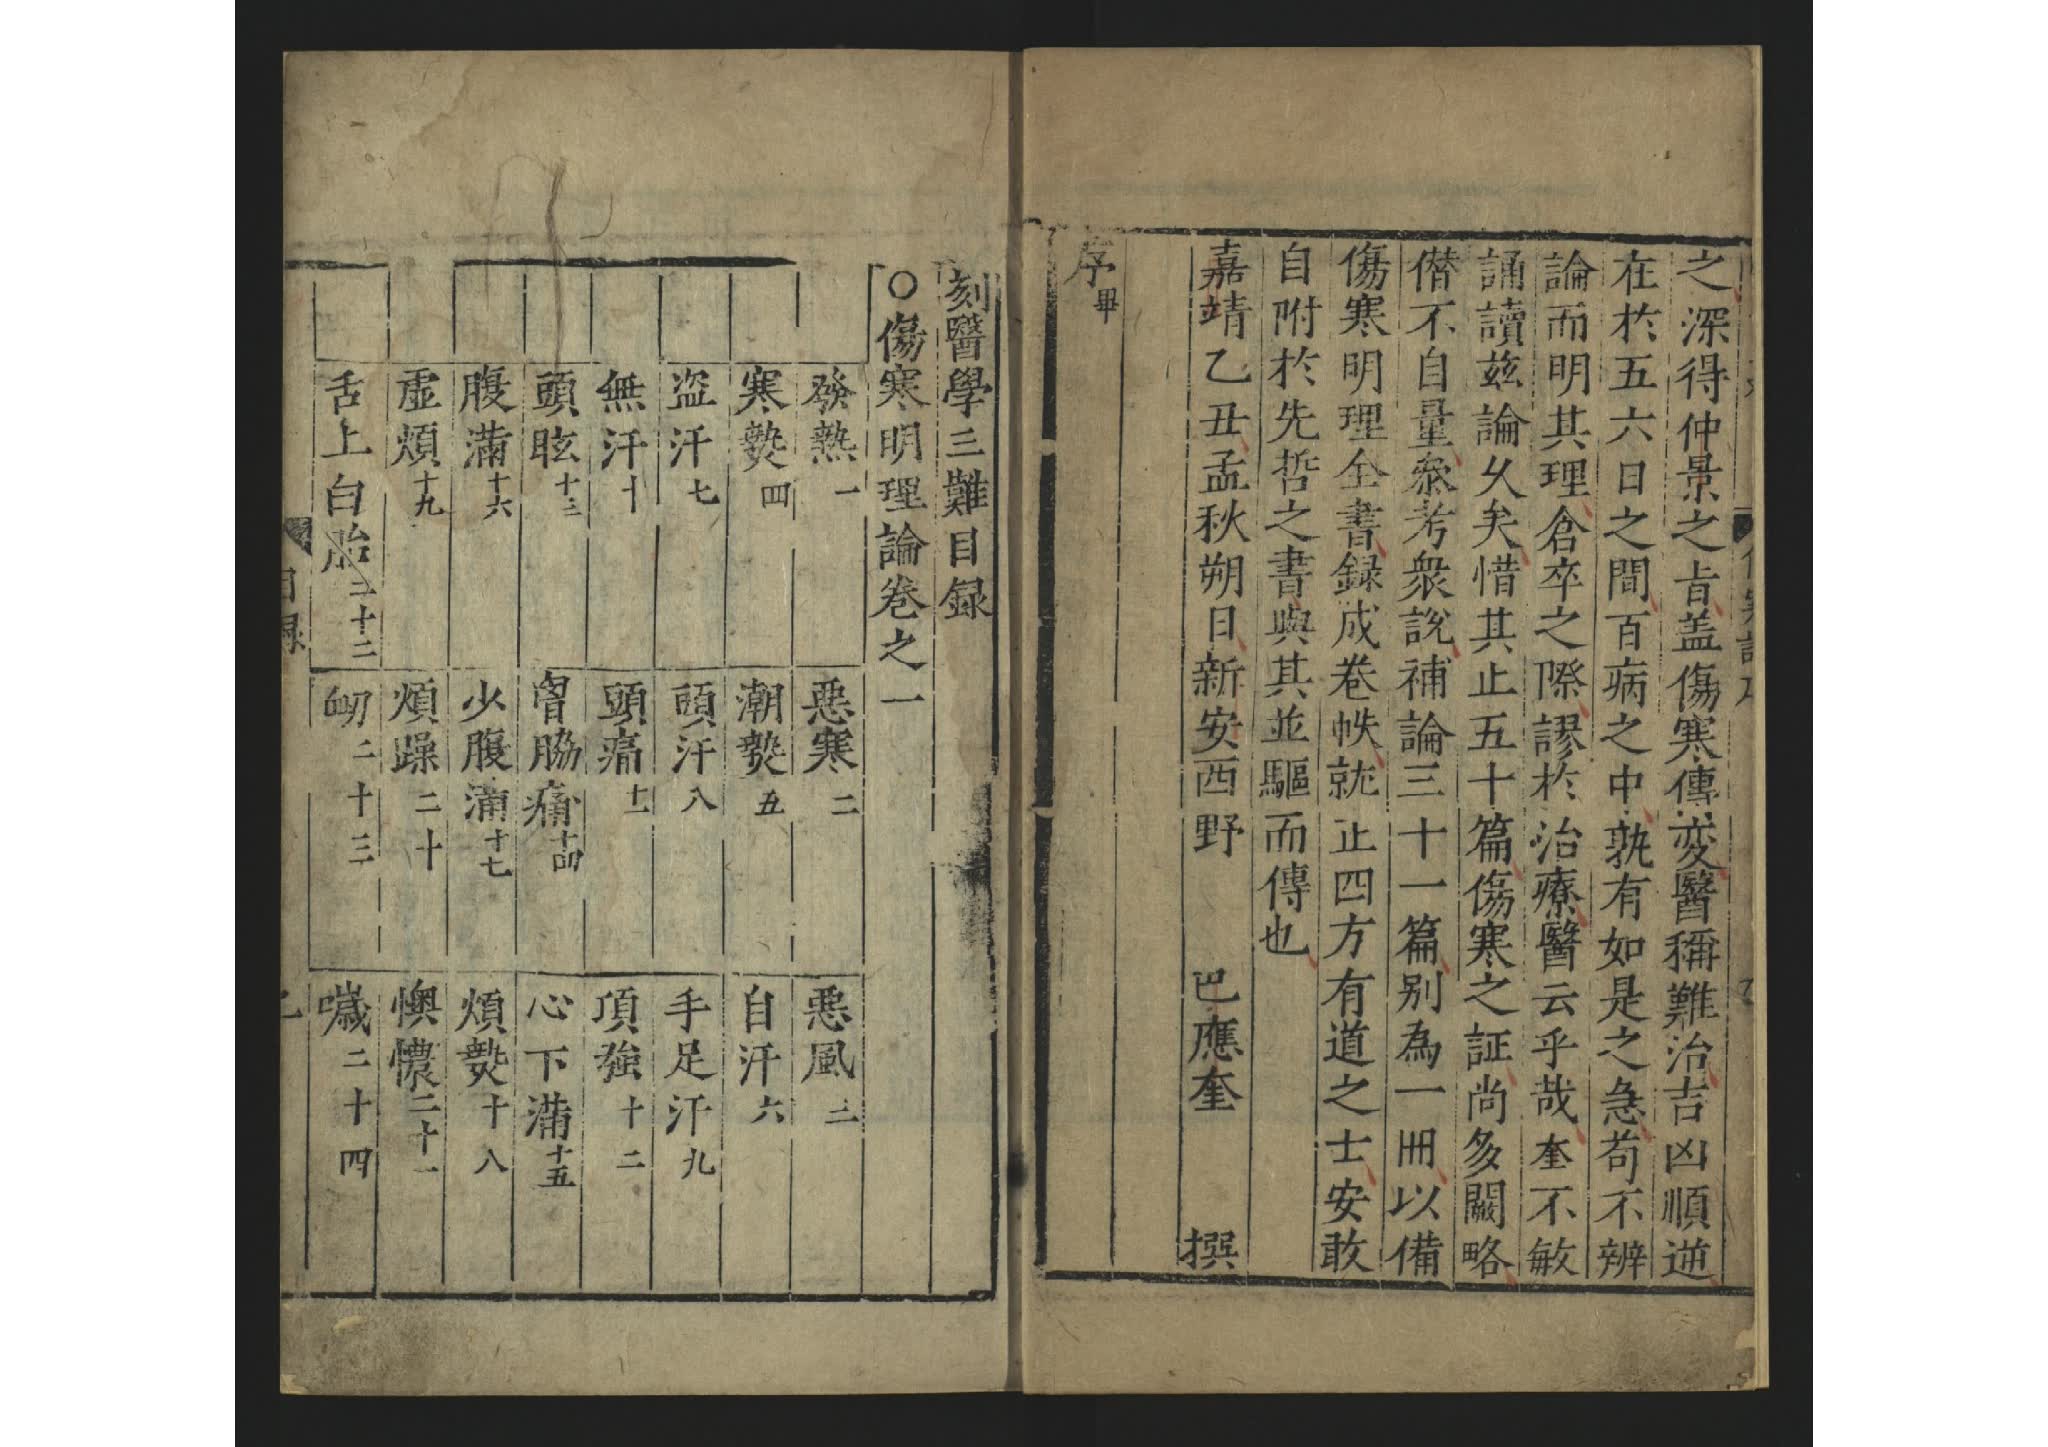 之深得仲景之旨盖傷寒傳变醫稱難治吉凶順逆
在於五六日之間百病之中孰有如是之急苟不辨
論而明其理倉卒之際謬於治療醫云乎哉奎不敏
誦讀玆論乆矣惜其止五十篇傷寒之証尚多闕略
僭不自量叅考衆說補論三十一篇别為一冊以備
傷寒明理全書録成卷帙就正四方有道之士安敢
自附於先哲之書與其並驅而傳也
嘉靖乙丑孟秋朔日新安西野 巴應奎 撰
序畢
刻醫學三難目録
○傷寒明理論卷之一
發熱一 惡寒二 惡風三
寒𤍠四 潮𤍠五 自汗六
盗汗七 頭汗八 手足汗九
無汗十 頭痛十一 項強十二
頭眩十三 胷脇痛十四 心下滿十五
腹滿十六 少腹滿十七 煩𤍠十八
虛煩十九 煩躁二十 懊憹二十一
舌上白胎二十二 衂二十三 噦二十四
目録